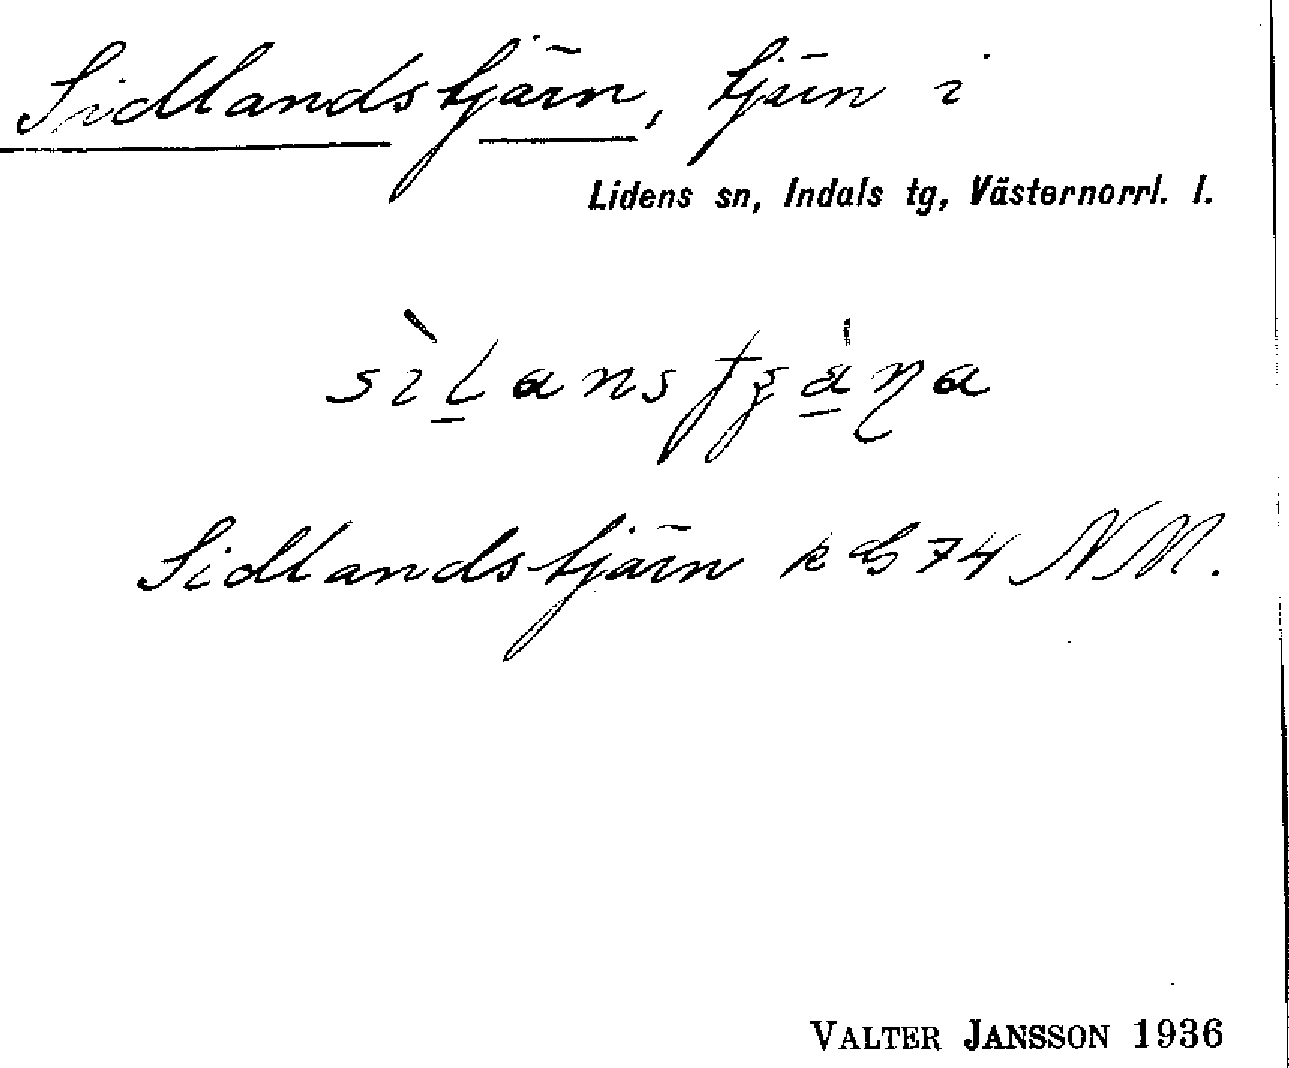 Sidlandstjärn, tjärn i
Lidens sn, Indals tg, Västernorrl. l.
Sidlandstjärn k bl 74 NM.
VALTER JANSSON 1936